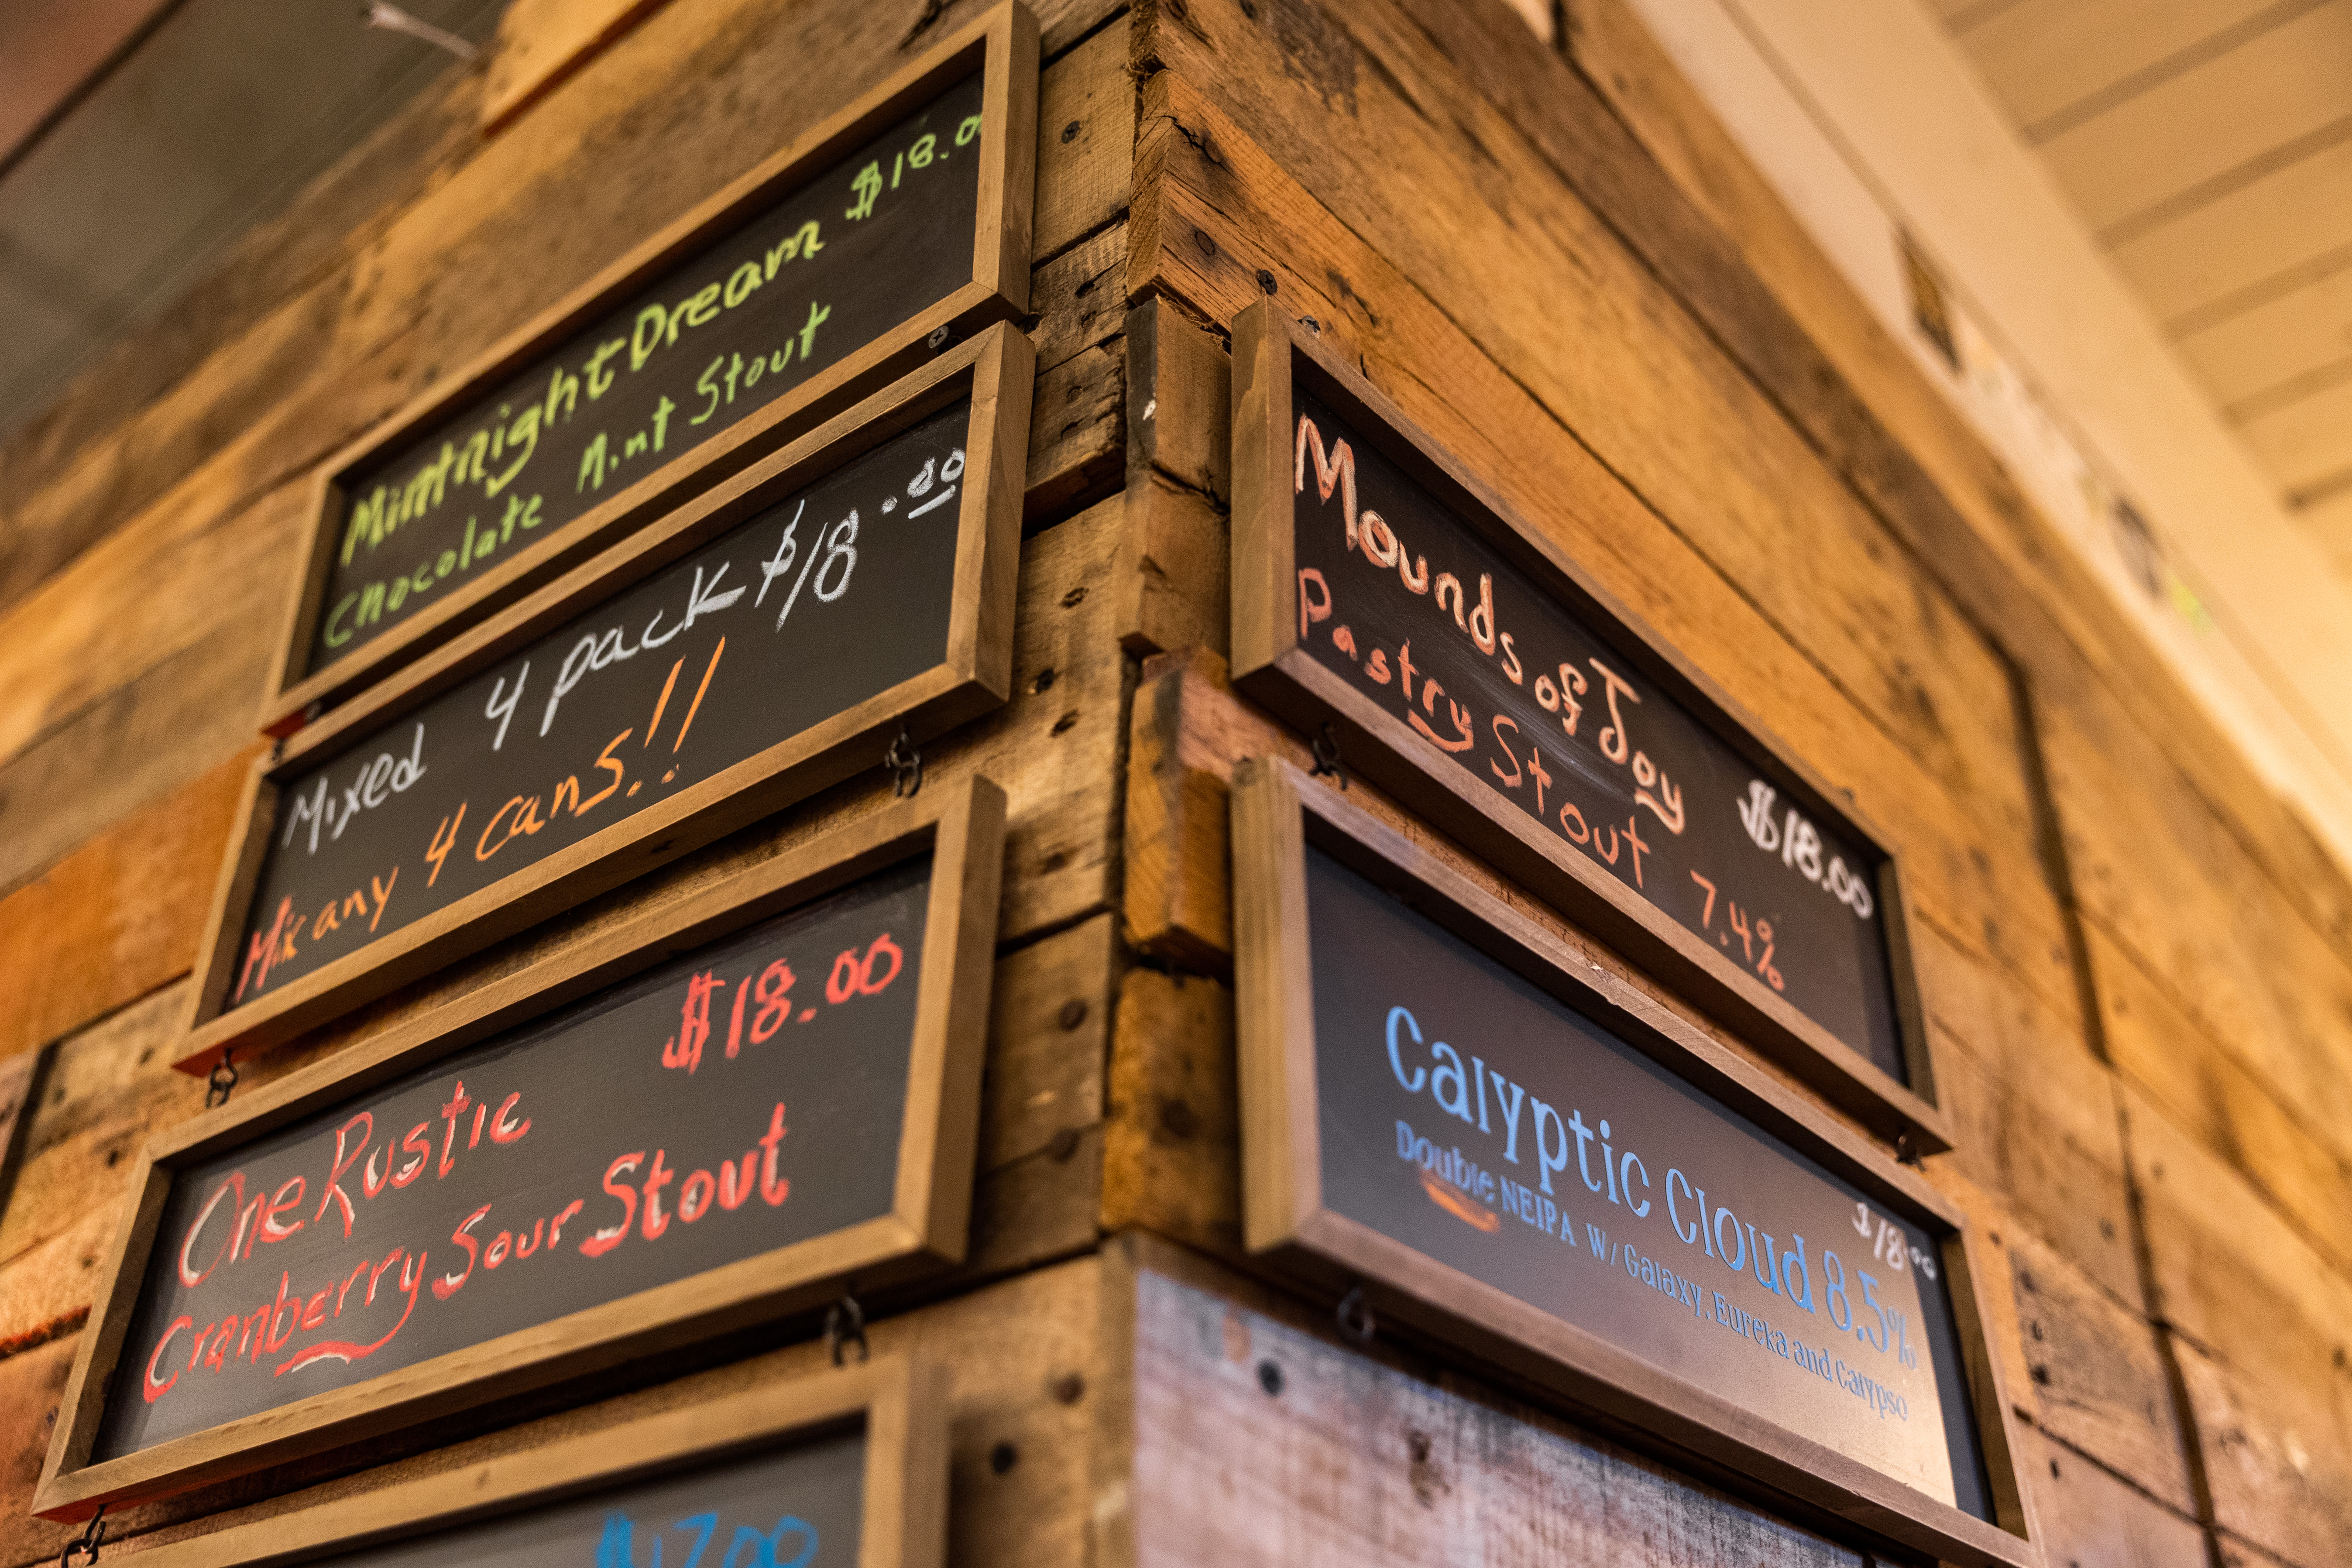 Mintnight Dream $18.0
Chocolate Mint Stout
Mixed 4 pack $18.00
Mix any 4 cans!!
One Rustic $18.00
Cranberry Sour Stout
$17.00
Mounds of Joy $18.00
Pastry Stout 7.4%
$18.00
Calyptic Cloud 8.5%
Double NEIPA W/ Galaxy, Eureka and Calypso